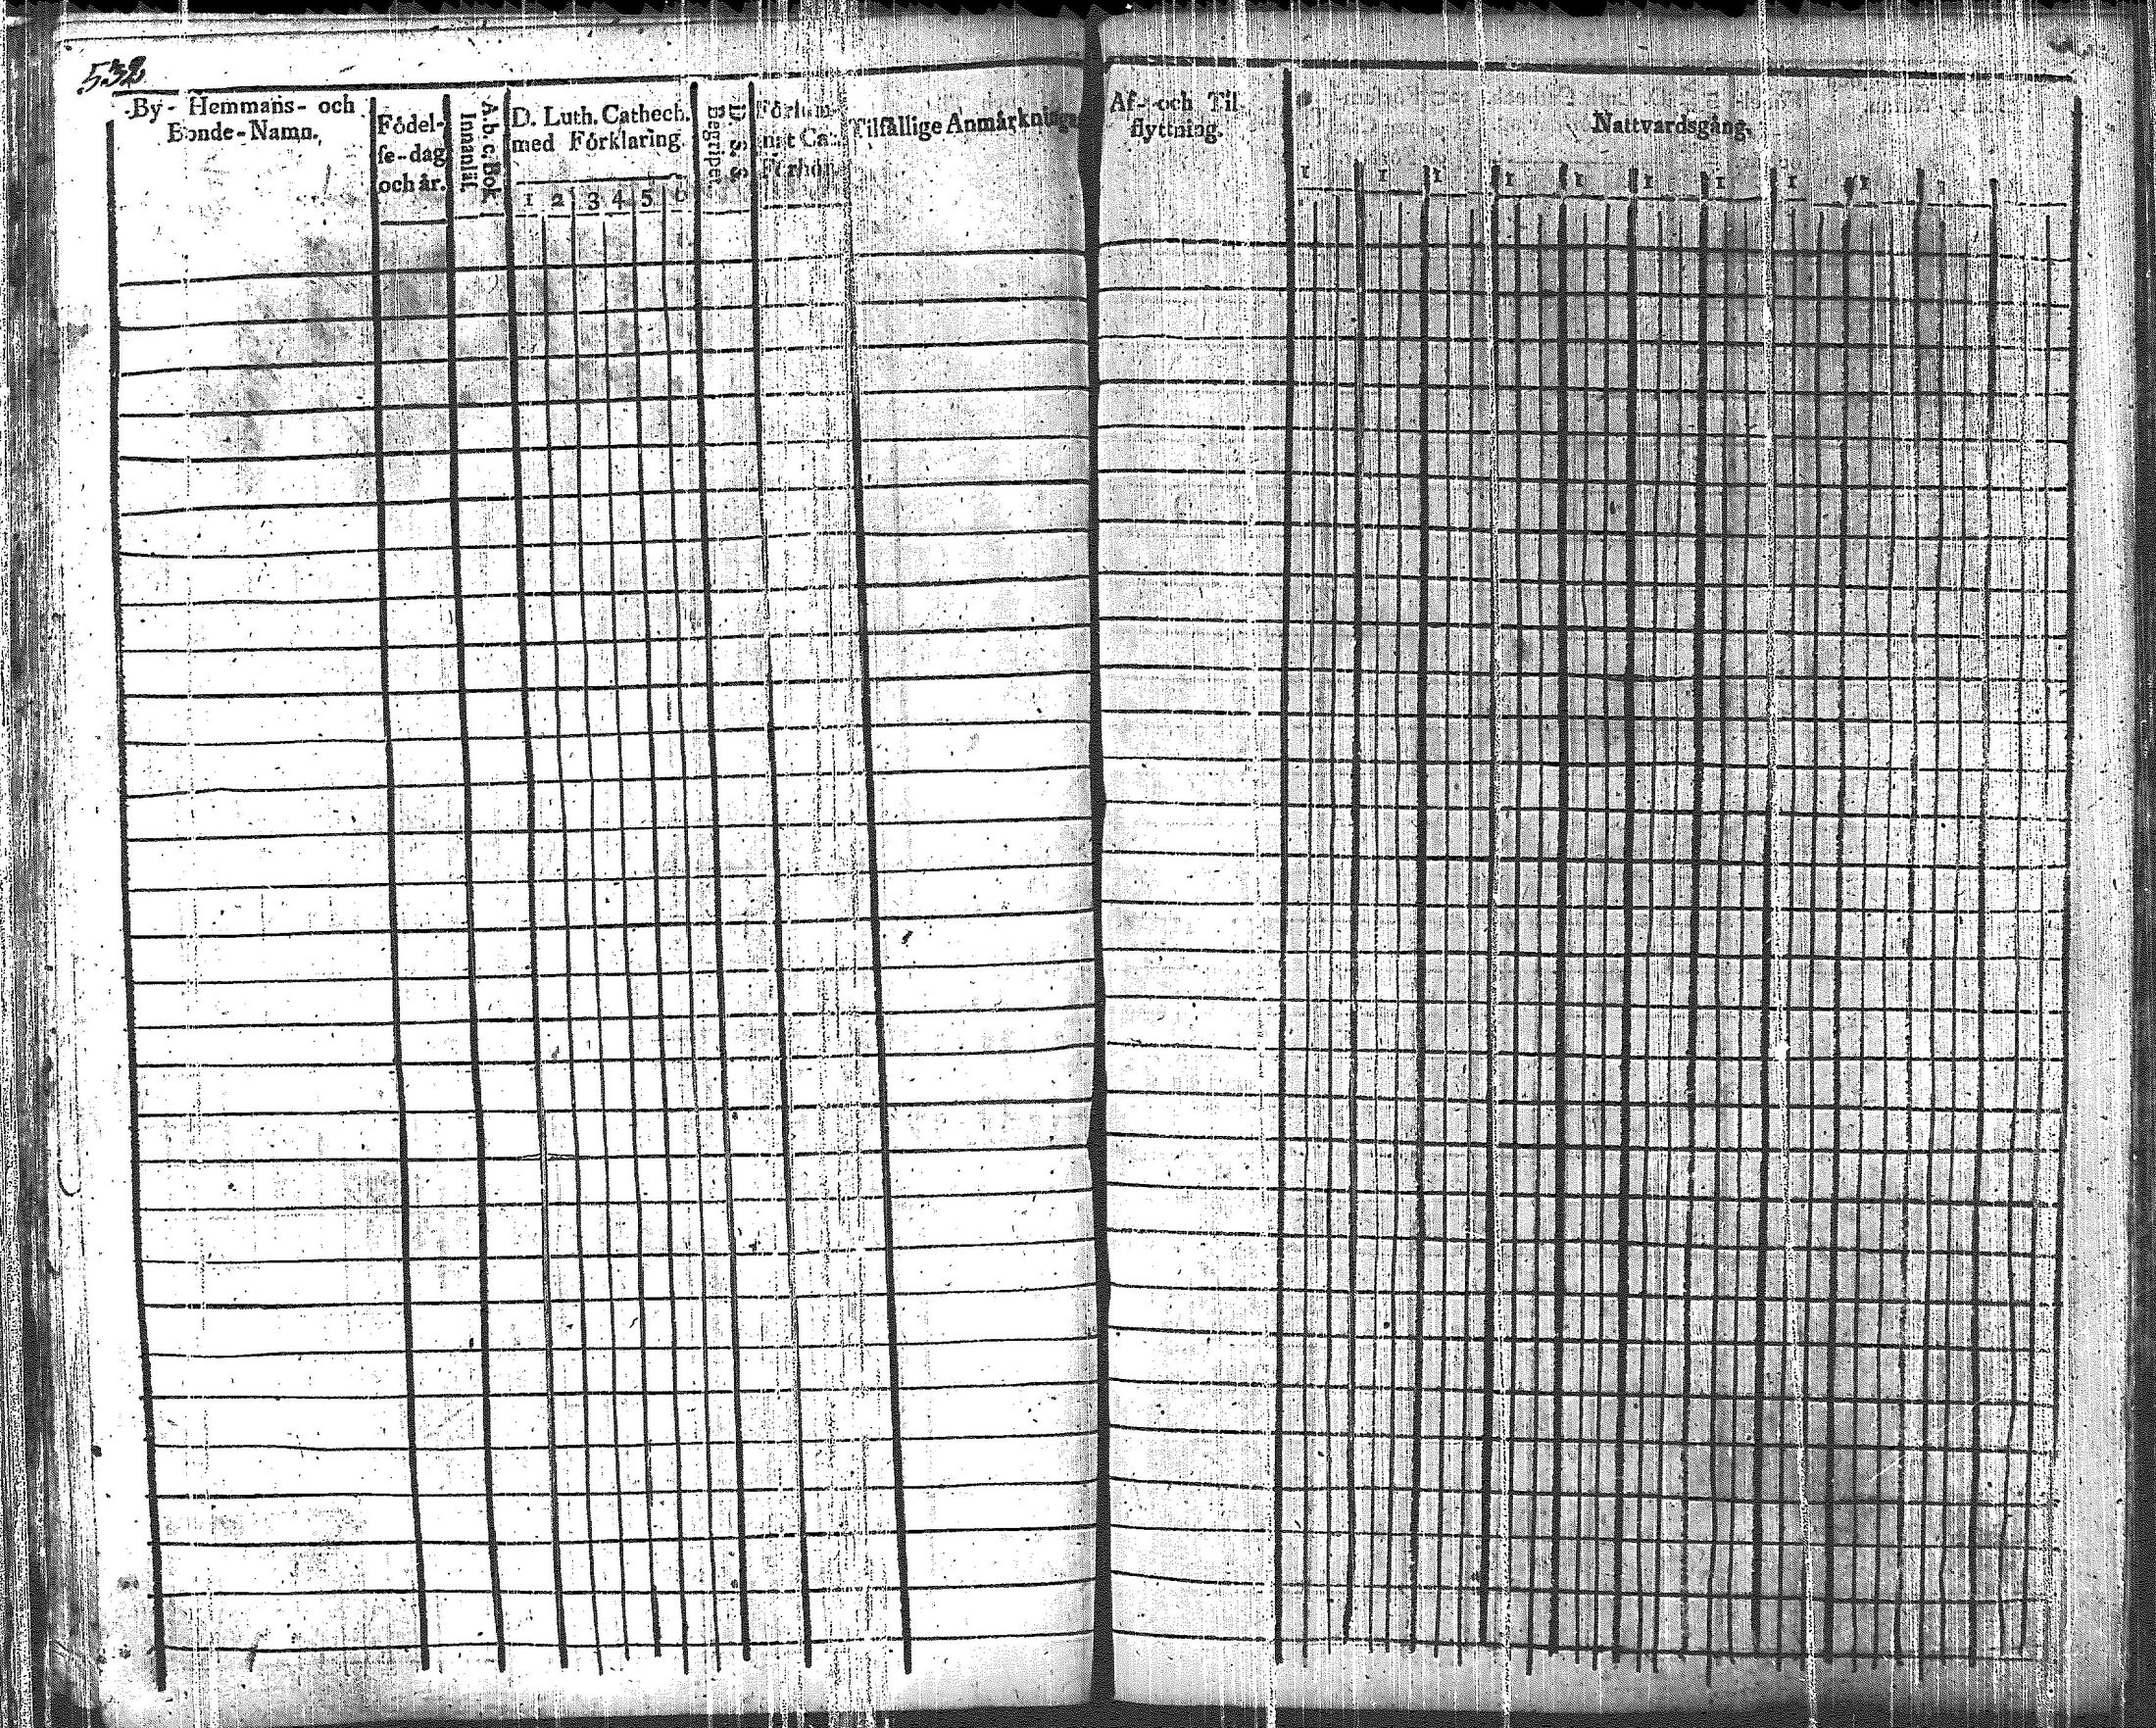 532
By- Hemmans- och
Bonde-Namn.
Födel-
se-dag
och år.
A.b.c. Bok.
Innanläs.
D. Luth. Cathech.
med Förklaring.
1 2 3 4 5 6
D. S. S.
Begriper.
Förhör.
Tilfällige Anmärkningar
Af- och Til
flyttning.
Nattvardsgång.
1 1 1 1 1 1 1 1 1